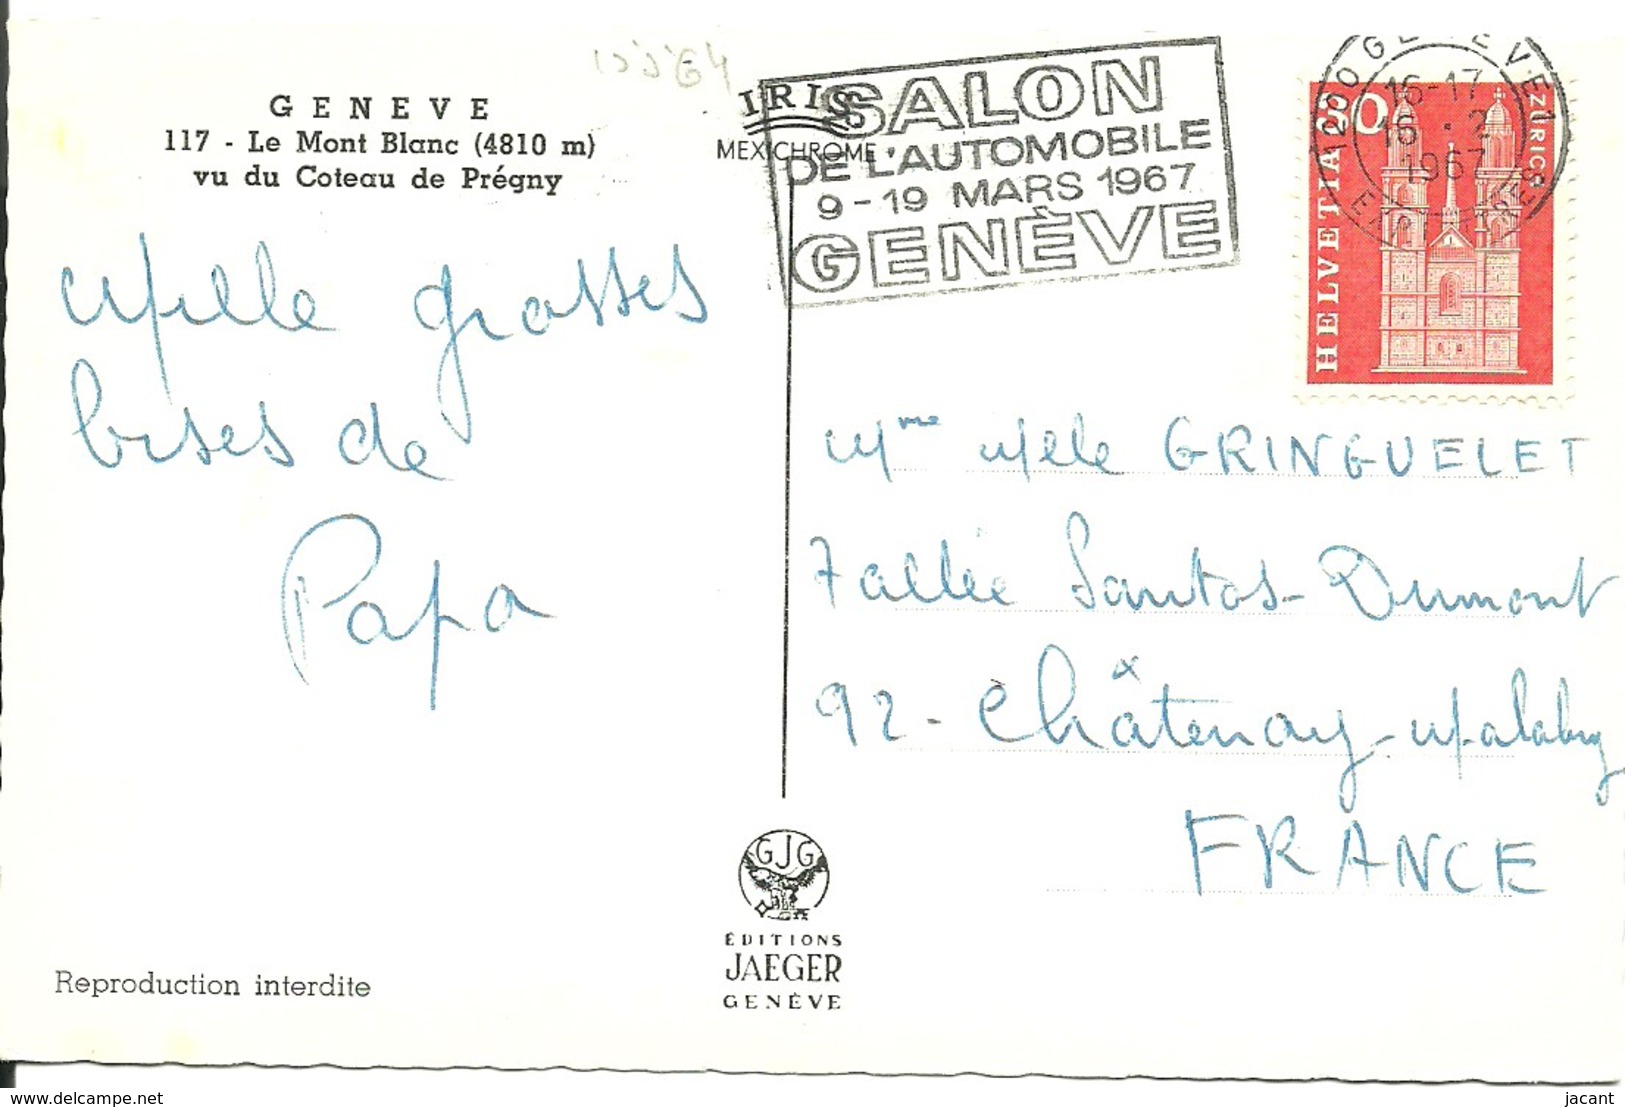 GENEVE
117 - Le Mont Blanc (4810 m)
vu du Coteau de Prégny
Mille grosses
bises de
Papa
Reproduction interdite
IRIS
MEXICHROME
SALON
DE L'AUTOMOBILE
9-19 MARS 1967
GENÈVE
GJG
ÉDITIONS
JAEGER
GENÈVE
1200 GENEVE 1
16-17
1967
30
HELVETIA
ZÜRICH
Mme Melle GRINGUELET
7 allée Santos-Dumont
92 - Châtenay-Malabry
FRANCE
delcampe.net
jacant